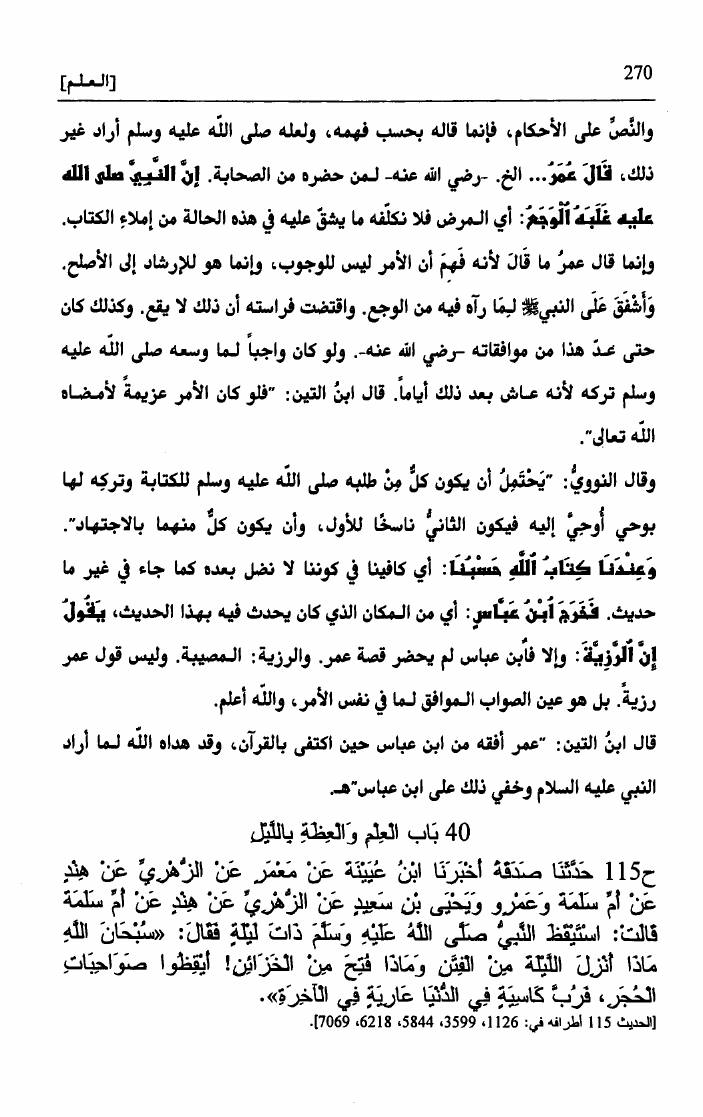 270
[العلم]
والنَّصِّ على الأحكام، فإنما قاله بحسب فهمه، ولعله صلى اللّه عليه وسلم أراد غير
ذلك، قَالَ عُمَرُ... الخ. -رضي الله عنه- لـمن حضره من الصحابة. إنَّ النَّبِيَّ صلى الله
عليه غَلَبَهُ ٱلْوَجَعُ: أي الـمرض فلا نكلّفه ما يشقّ عليه في هذه الحالة من إملاءِ الكتاب.
وإنما قال عمرُ ما قَالَ لأنه فَهِمَ أن الأمر ليس للوجوب، وإنما هو للإرشاد إلى الأصلح.
وَأَشْفَقَ عَلَى النبيﷺ لِمَا رآه فيه من الوجع. واقتضت فراسته أن ذلك لا يقع. وكذلك كان
حتى عُدّ هذا من موافقاته -رضي الله عنه-. ولو كان واجباً لـما وسعه صلى اللّه عليه
وسلم تركه لأنه عـاش بعد ذلك أياماً. قال ابنُ التين: "فلو كان الأمر عزيمةً لأمـضـاه
اللّه تعالى".
وقال النوويُّ: "يَحْتَمِلُ أن يكون كلٌّ مِنْ طلبه صلى اللّه عليه وسلم للكتابة وتركِه لها
بوحي أُوحِيَ إليه فيكون الثانيُّ ناسخًا للأول، وأن يكون كلٌّ منهما بالاجتهاد".
وَعِنْدَنَا كِتَابُ ٱللَّهِ حَسْبُنَا: أي كافينا في كوننا لا نضل بعده كما جاء في غير ما
حديث. فَخَرَجَ ٱبْنُ عَبَّاسٍ: أي من الـمكان الذي كان يحدث فيه بهذا الحديث، يَقُولُ
إِنَّ ٱلرَّزِيَّةَ: وإلا فٱبن عباس لم يحضر قصة عمر. والرزية: الـمصيبة. وليس قول عمر
رزيةً. بل هو عين الصواب الـموافق لـما في نفس الأمر، واللّه أعلم.
قال ابنُ التين: "عمر أفقه من ابن عباس حين اكتفى بالقرآن، وقد هداه اللّه لـما أراد
النبي عليه السلام وخفي ذلك على ابن عباس"هـ.
40 بَاب الْعِلْمِ وَالْعِظَةِ بِاللَّيْلِ
ح115 حَدَّثَنَا صَدَقَةُ أَخْبَرَنَا ابْنُ عُيَيْنَةَ عَنْ مَعْمَرٍ عَنْ الزُّهْرِيِّ عَنْ هِنْدٍ
عَنْ أُمِّ سَلَمَةَ وَعَمْرٍو وَيَحْيَى بْنِ سَعِيدٍ عَنْ الزُّهْرِيِّ عَنْ هِنْدٍ عَنْ أُمِّ سَلَمَةَ
قَالَتْ: اسْتَيْقَظَ النَّبِيُّ صَلَّى اللَّهُ عَلَيْهِ وَسَلَّمَ ذَاتَ لَيْلَةٍ فَقَالَ: «سُبْحَانَ اللَّهِ
مَاذَا أُنْزِلَ اللَّيْلَةَ مِنْ الْفِتَنِ وَمَاذَا فُتِحَ مِنْ الْخَزَائِنِ! أَيْقِظُوا صَوَاحِبَاتِ
الْحُجَرِ، فَرُبَّ كَاسِيَةٍ فِي الدُّنْيَا عَارِيَةٍ فِي الْآخِرَةِ».
[الحديث 115 أطرافه في: 1126، 3599، 5844، 6218، 7069].